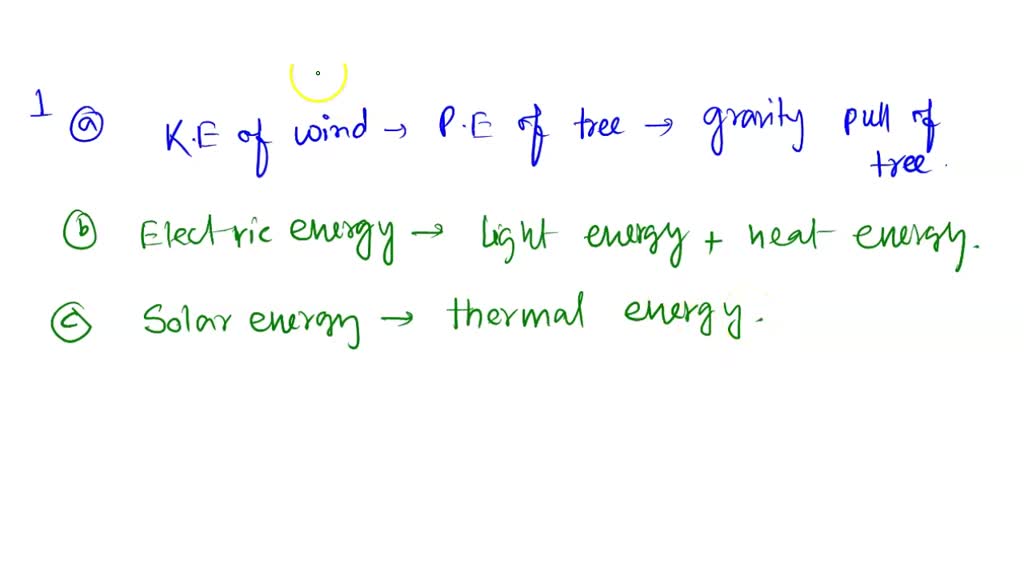 1 (a) K.E of wind → P.E of tree → gravity pull of
tree.
(b) Electric energy → light energy + heat energy.
(c) Solar energy → thermal energy.